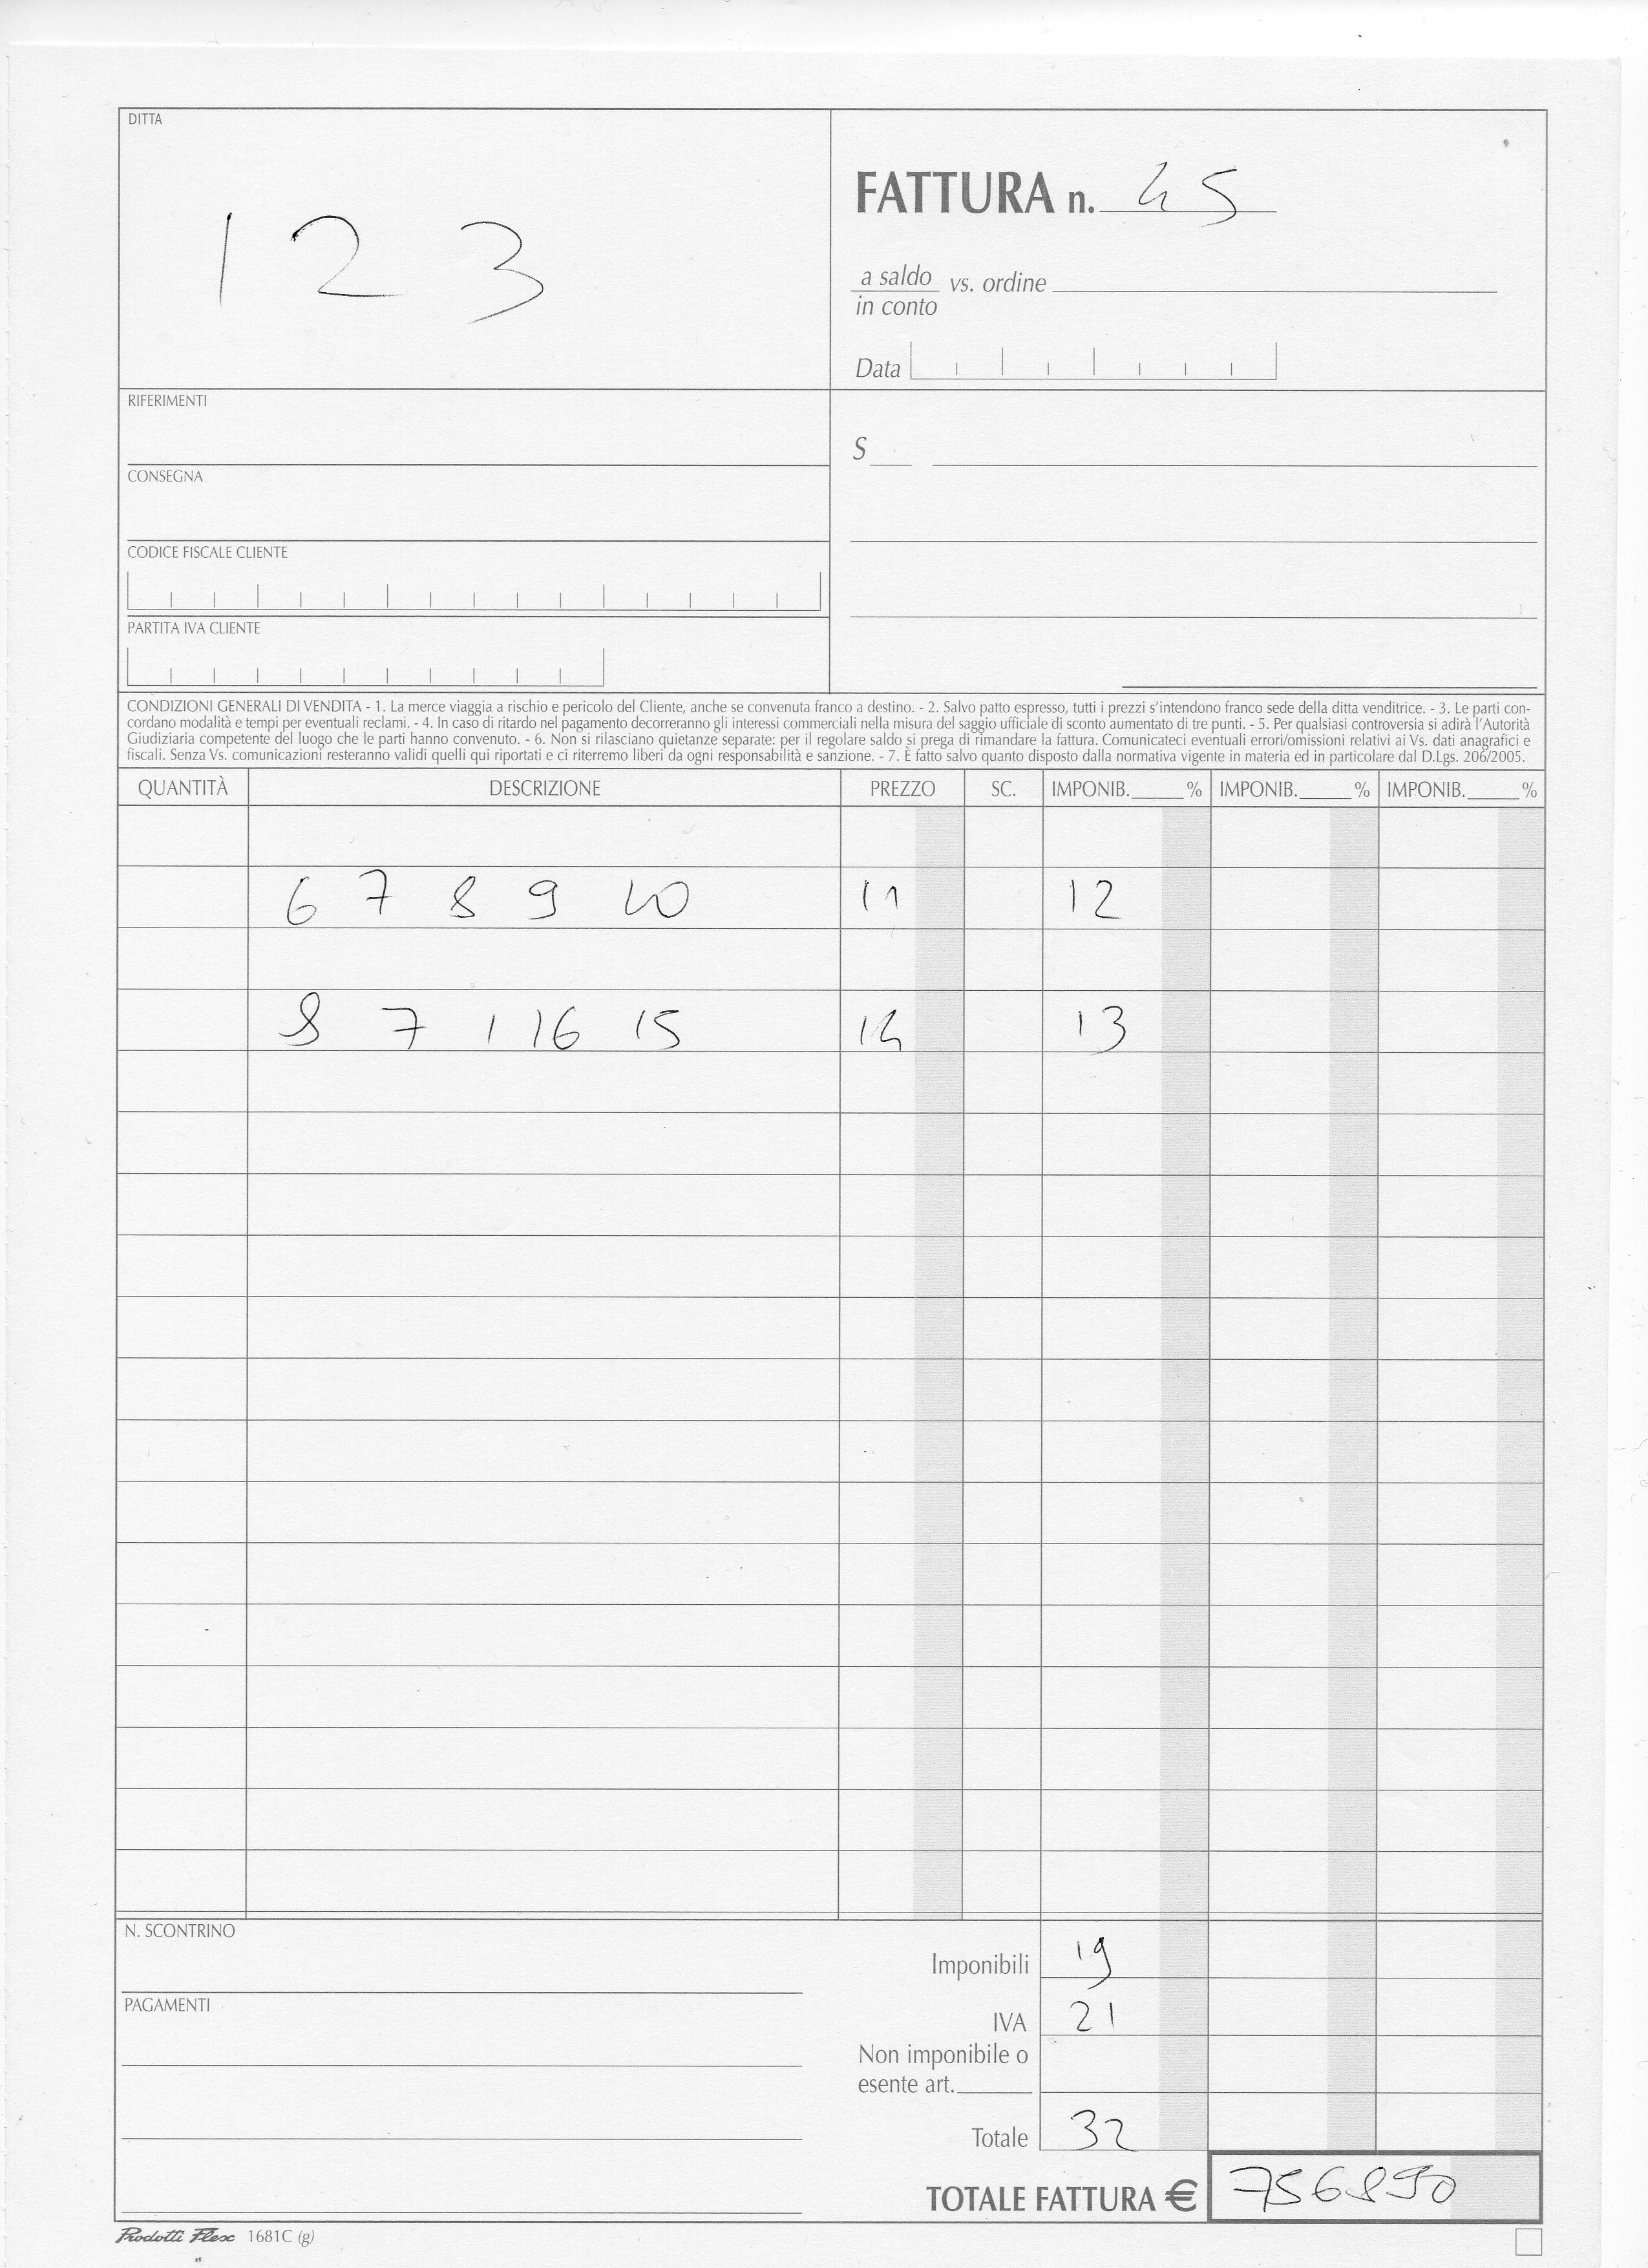 DITTA
1 2 3
FATTURA n. 45
a saldo vs. ordine
in conto
Data
RIFERIMENTI
CONSEGNA
CODICE FISCALE CLIENTE
PARTITA IVA CLIENTE
S
CONDIZIONI GENERALI DI VENDITA - 1. La merce viaggia a rischio e pericolo del Cliente, anche se convenuta franco a destino. - 2. Salvo patto espresso, tutti i prezzi s'intendono franco sede della ditta venditrice. - 3. Le parti con-
cordano modalità e tempi per eventuali reclami. - 4. In caso di ritardo nel pagamento decorreranno gli interessi commerciali nella misura del saggio ufficiale di sconto aumentato di tre punti. - 5. Per qualsiasi controversia si adirà l'Autorità
Giudiziaria competente del luogo che le parti hanno convenuto. - 6. Non si rilasciano quietanze separate: per il regolare saldo si prega di rimandare la fattura. Comunicateci eventuali errori/omissioni relativi ai Vs. dati anagrafici e
fiscali. Senza Vs. comunicazioni resteranno validi quelli qui riportati e ci riterremo liberi da ogni responsabilità e sanzione. - 7. È fatto salvo quanto disposto dalla normativa vigente in materia ed in particolare dal D.Lgs. 206/2005.
QUANTITÀ DESCRIZIONE PREZZO SC. IMPONIB. % IMPONIB. % IMPONIB. %
6 7 8 9 10 11 12
8 7 1 16 15 14 13
N. SCONTRINO
PAGAMENTI
Imponibili 19
IVA 21
Non imponibile o
esente art.
Totale 32
TOTALE FATTURA € 756890
Prodotti Flex 1681C (g)